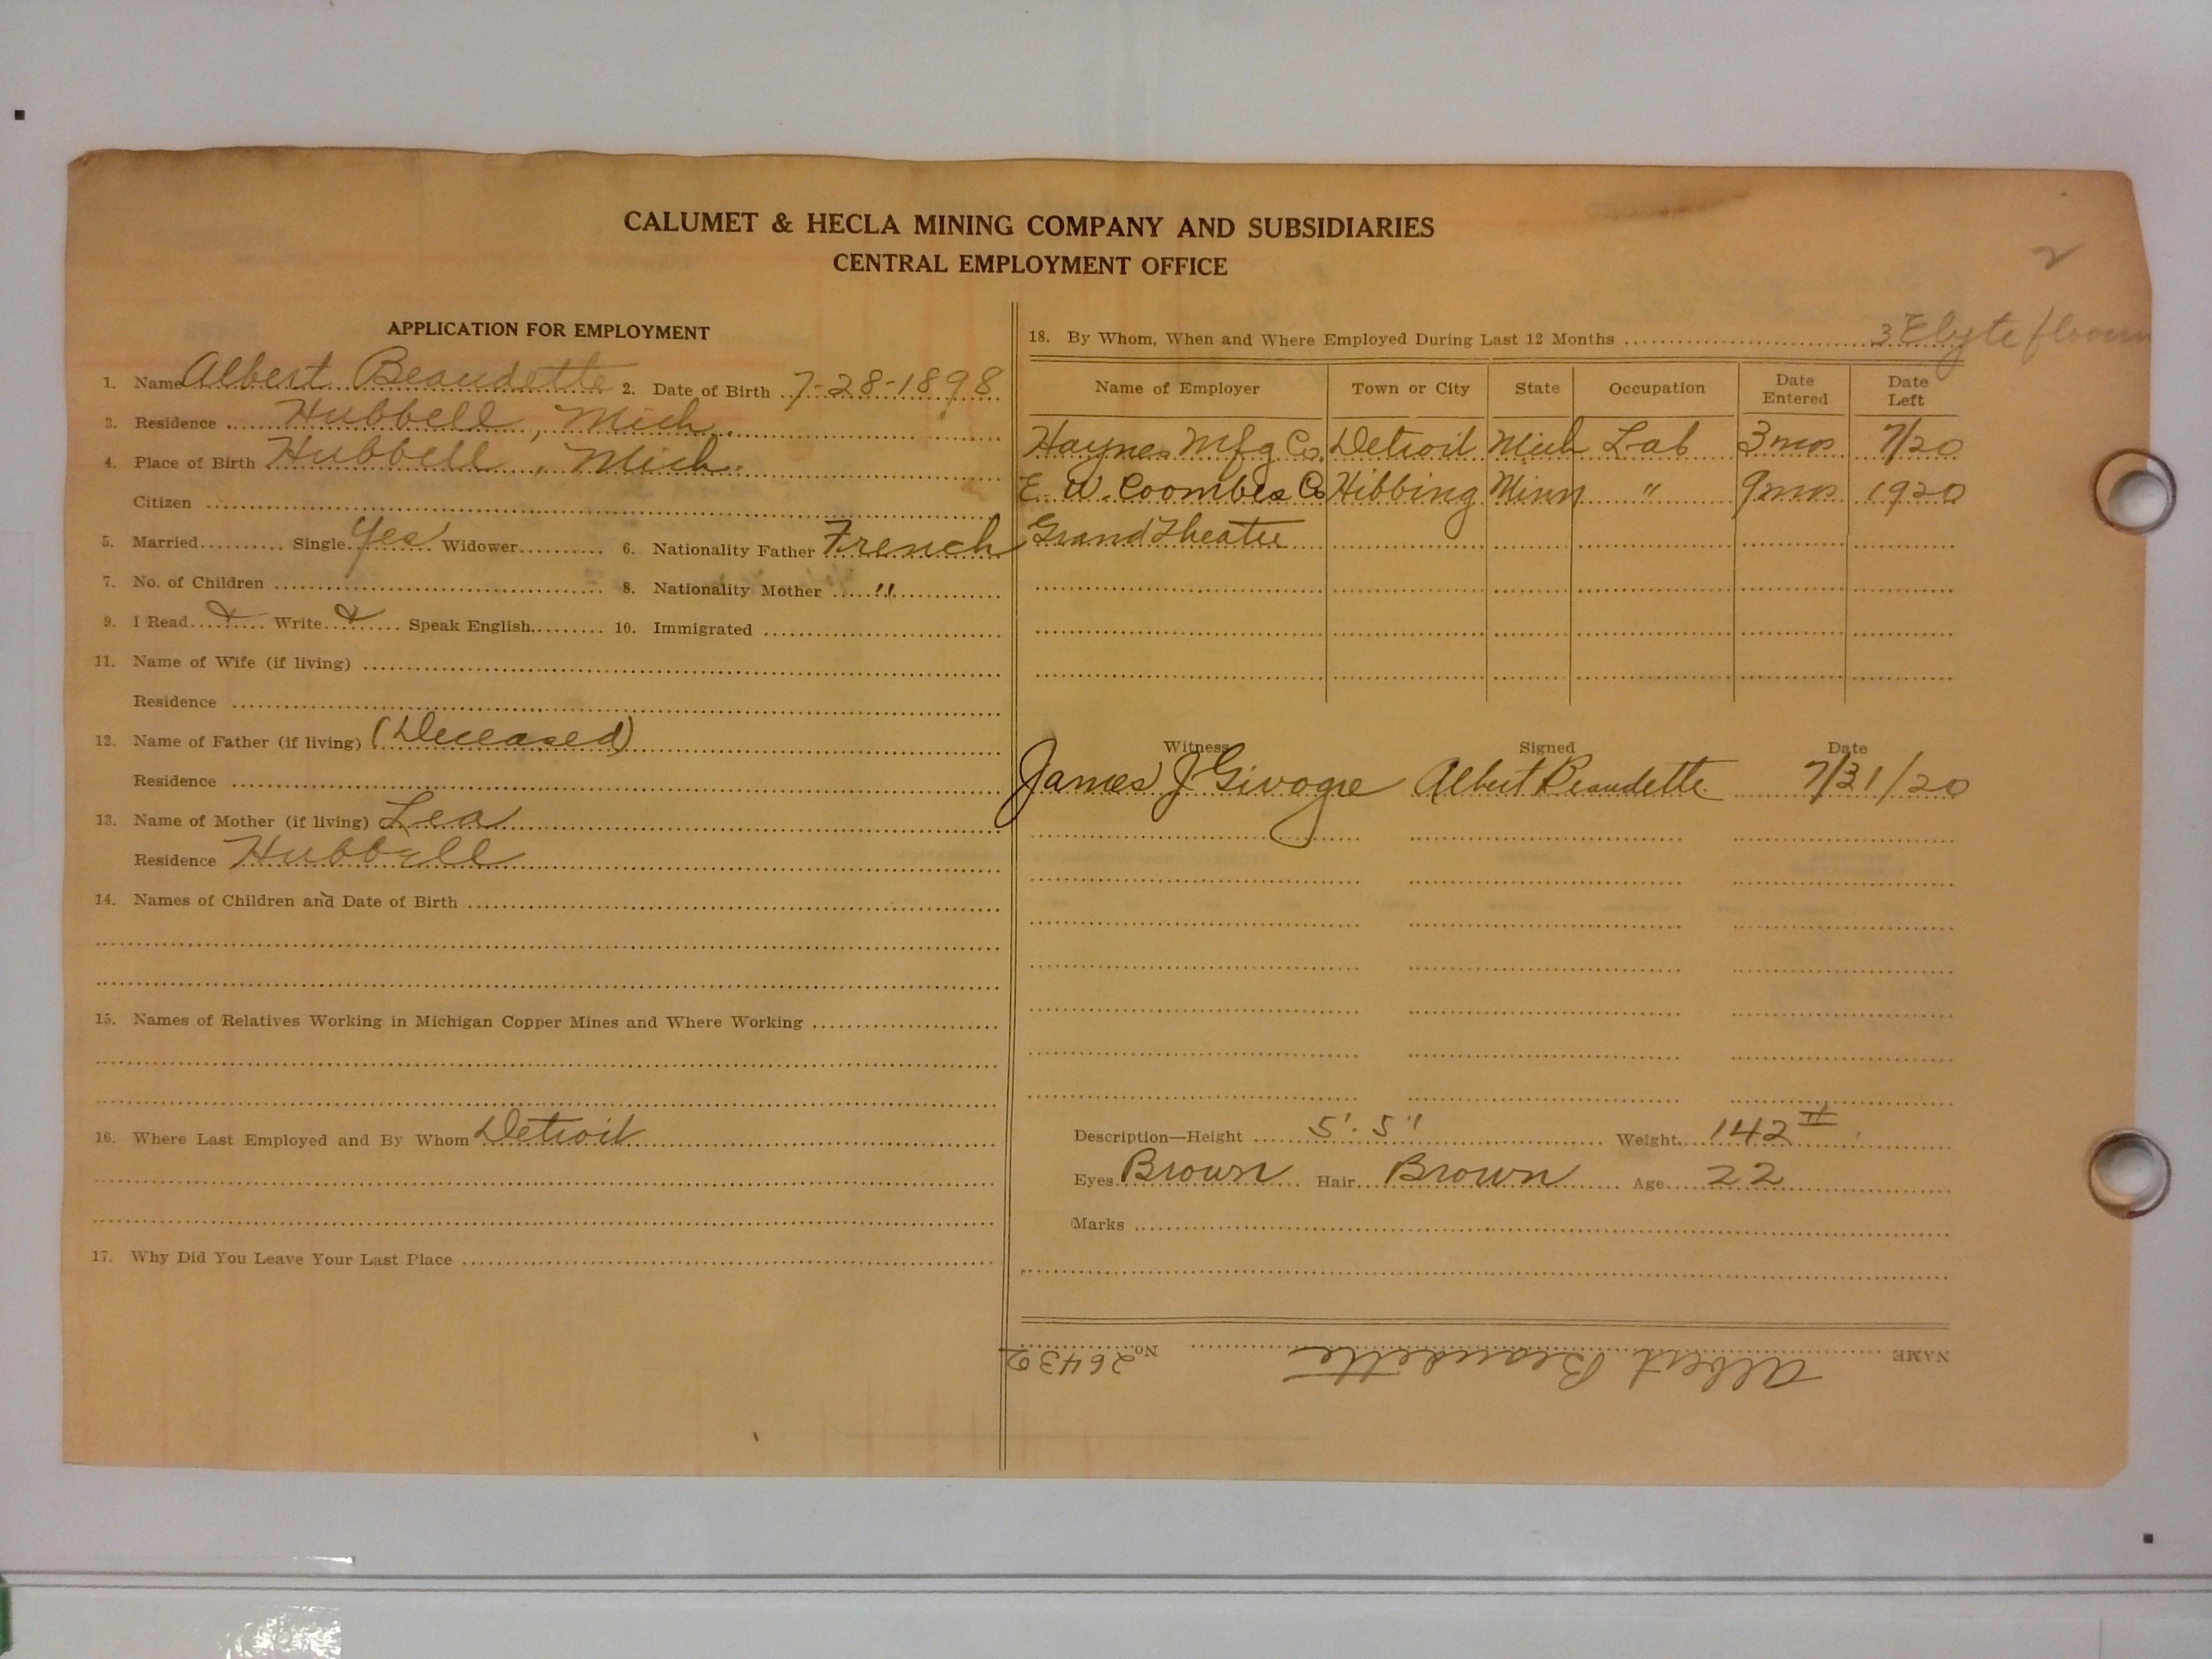 CALUMET & HECLA MINING COMPANY AND SUBSIDIARIES
CENTRAL EMPLOYMENT OFFICE
2
APPLICATION FOR EMPLOYMENT
1. Name Albert Beaudette 2. Date of Birth 7-28-1898
3. Residence Hubbell, Mich.
4. Place of Birth Hubbell, Mich.
Citizen
5. Married Single Yes Widower 6. Nationality Father French
7. No. of Children 8. Nationality Mother "
9. I Read & Write & Speak English 10. Immigrated
11. Name of Wife (if living)
Residence
12. Name of Father (if living) (Deceased)
Residence
13. Name of Mother (if living) Lea
Residence Hubbell
14. Names of Children and Date of Birth
15. Names of Relatives Working in Michigan Copper Mines and Where Working
16. Where Last Employed and By Whom Detroit
17. Why Did You Leave Your Last Place
18. By Whom, When and Where Employed During Last 12 Months 3
Name of Employer Town or City State Occupation Date Entered Date Left
Haynes Mfg Co. Detroit Mich Lab 3 mos 7/20
E. W. Coombes Co Hibbing Minn " 9 mos 1920
Grand Theatre
Witness Signed Date
James J Albert Beaudette 7/31/20
Description—Height 5' 5" Weight 142 #
Eyes Brown Hair Brown Age 22
Marks
NAME Albert Beaudette No. 26432